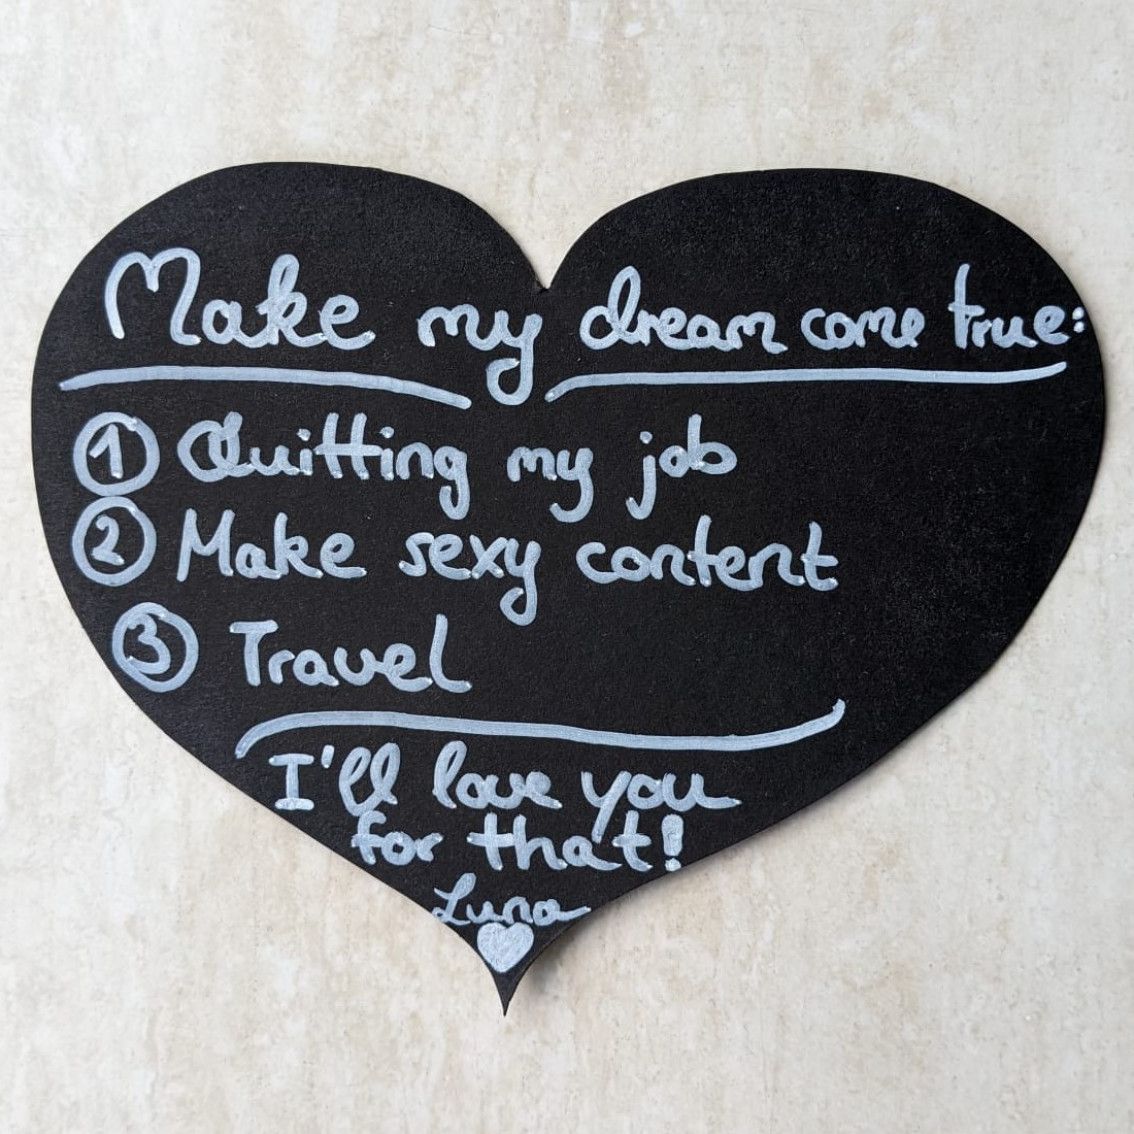 Make my dream come true:
1 Quitting my job
2 Make sexy content
3 Travel
I'll love you
for that!
Luna